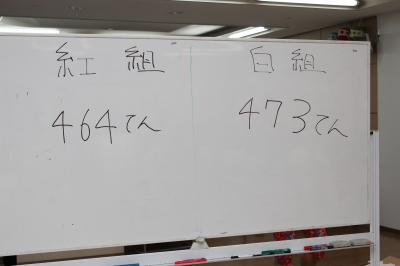 紅組 白組
464てん 473てん